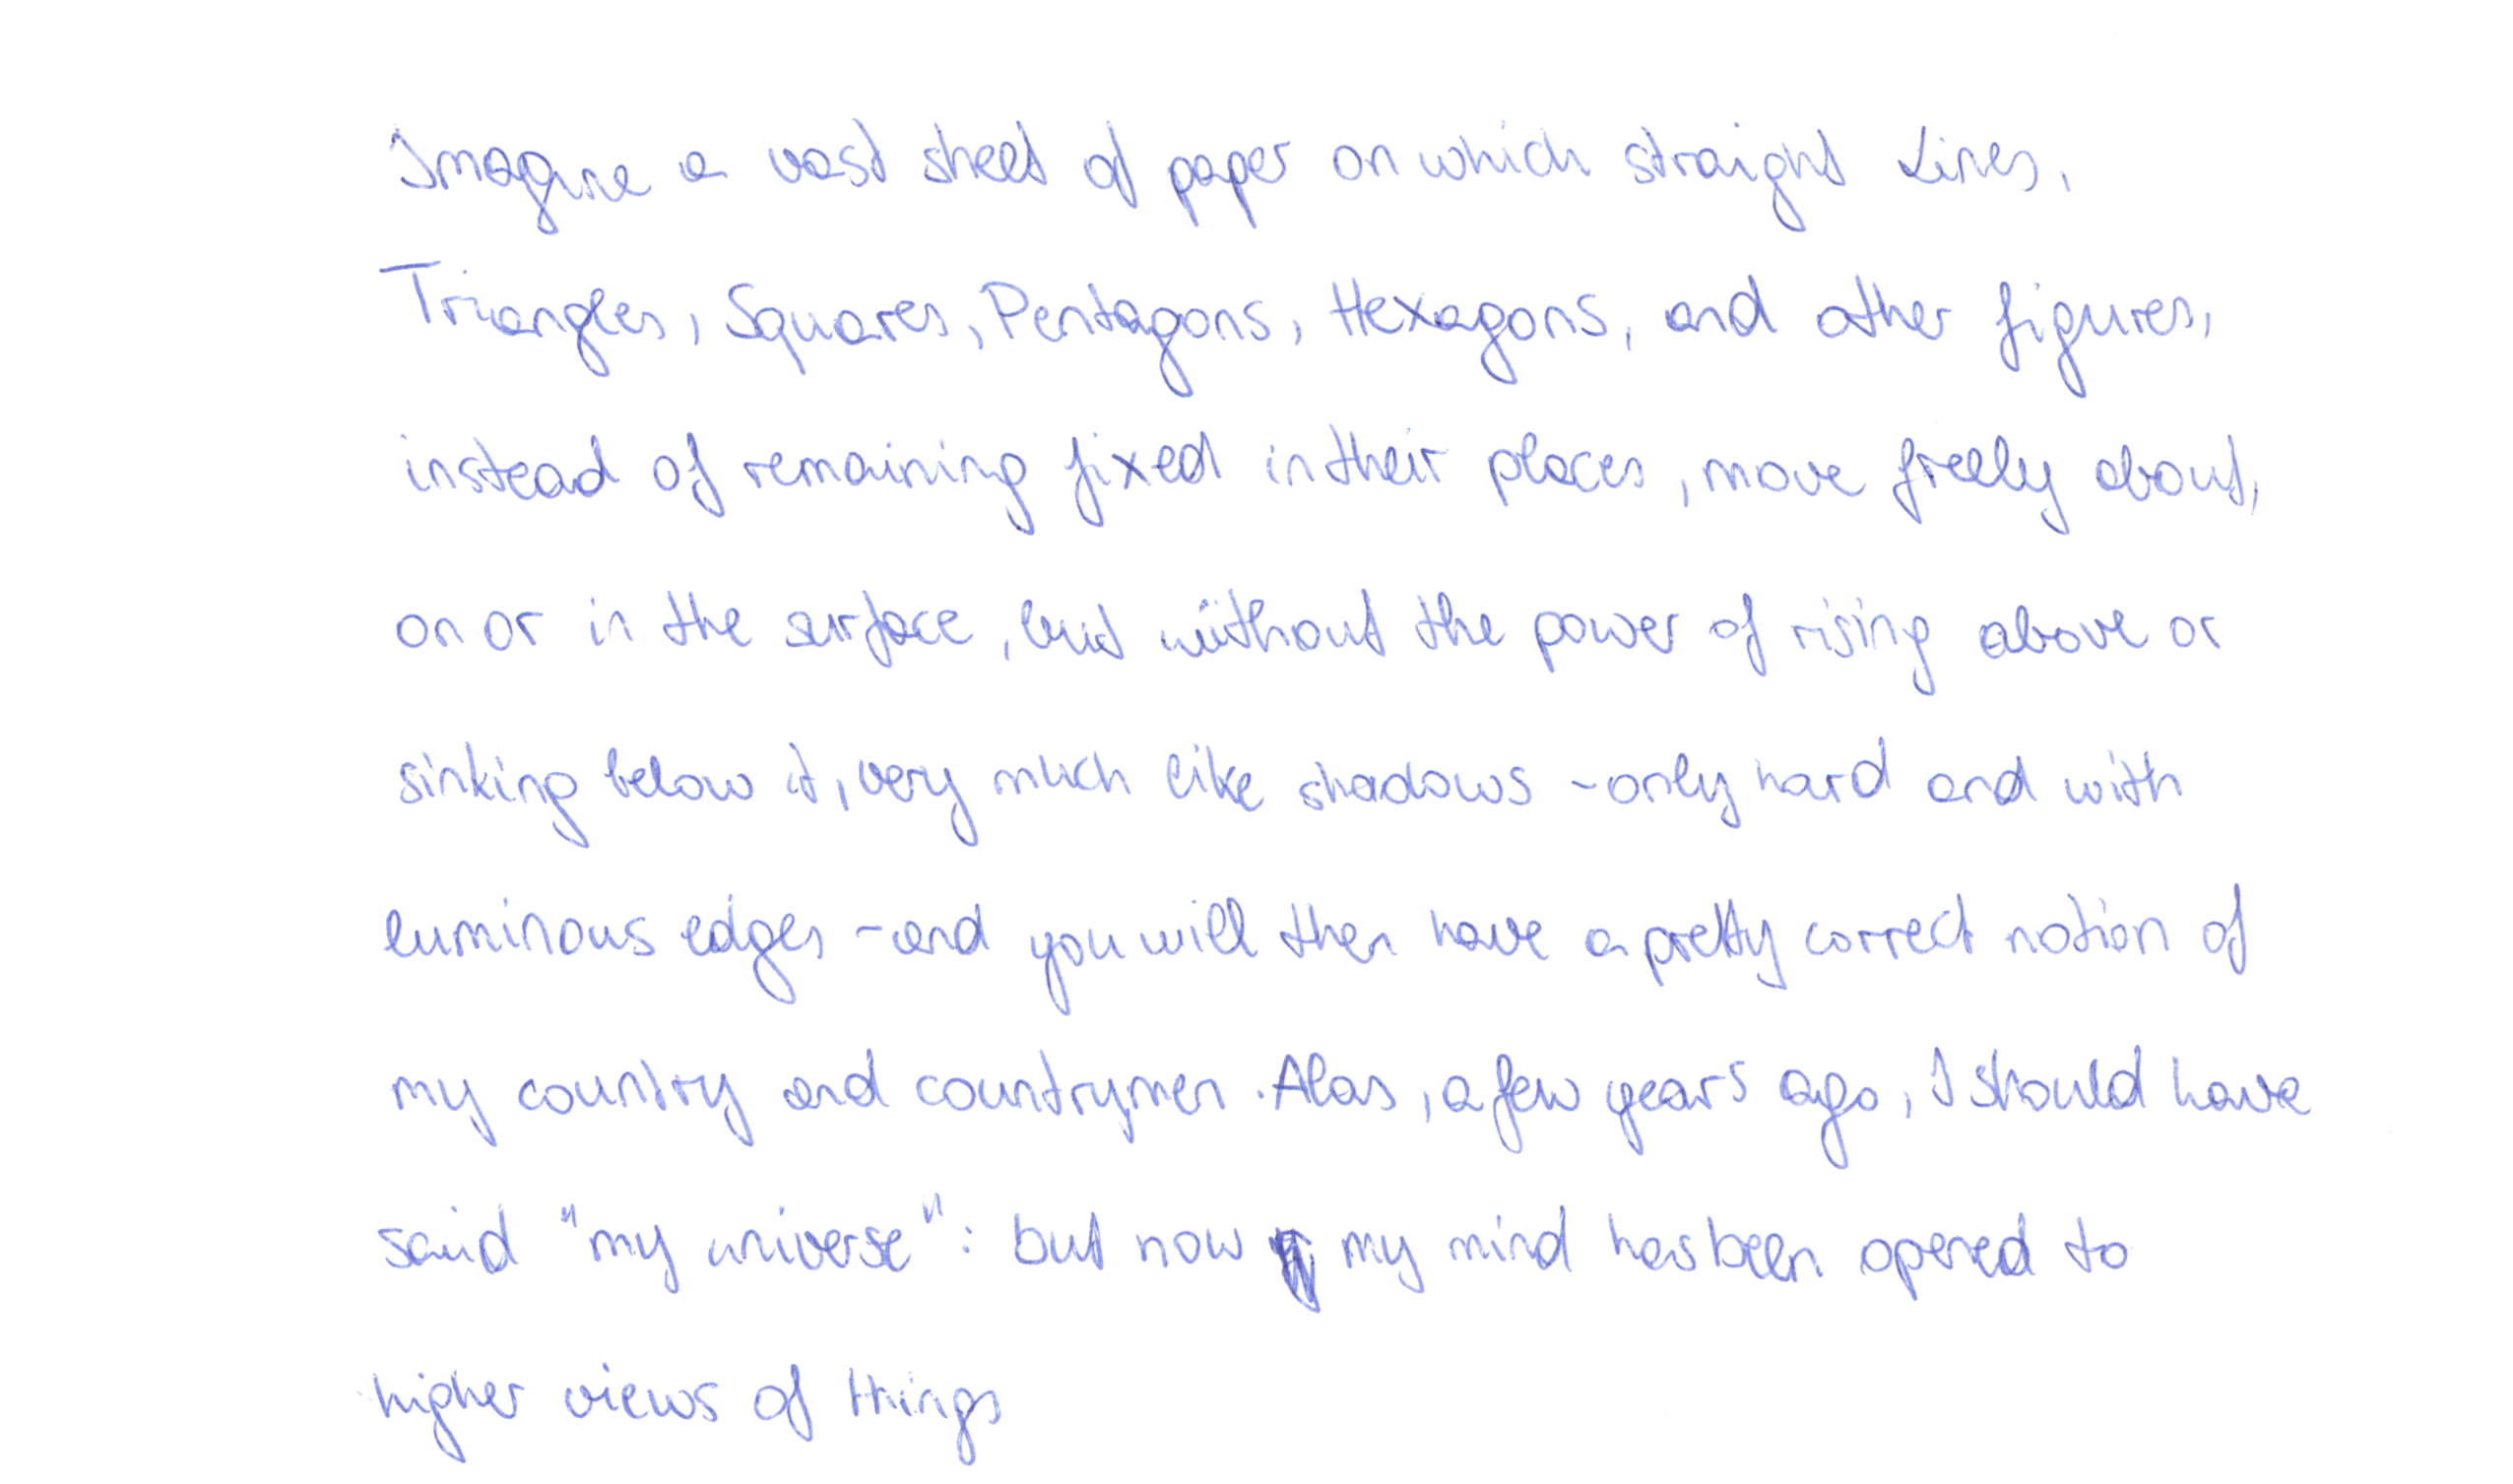 Imagine a vast sheet of paper on which straight Lines,
Triangles, Squares, Pentagons, Hexagons, and other figures,
instead of remaining fixed in their places, move freely about,
on or in the surface, but without the power of rising above or
sinking below it, very much like shadows - only hard and with
luminous edges - and you will then have a pretty correct notion of
my country and countrymen. Alas, a few years ago, I should have
said "my universe": but now my mind has been opened to
higher views of things